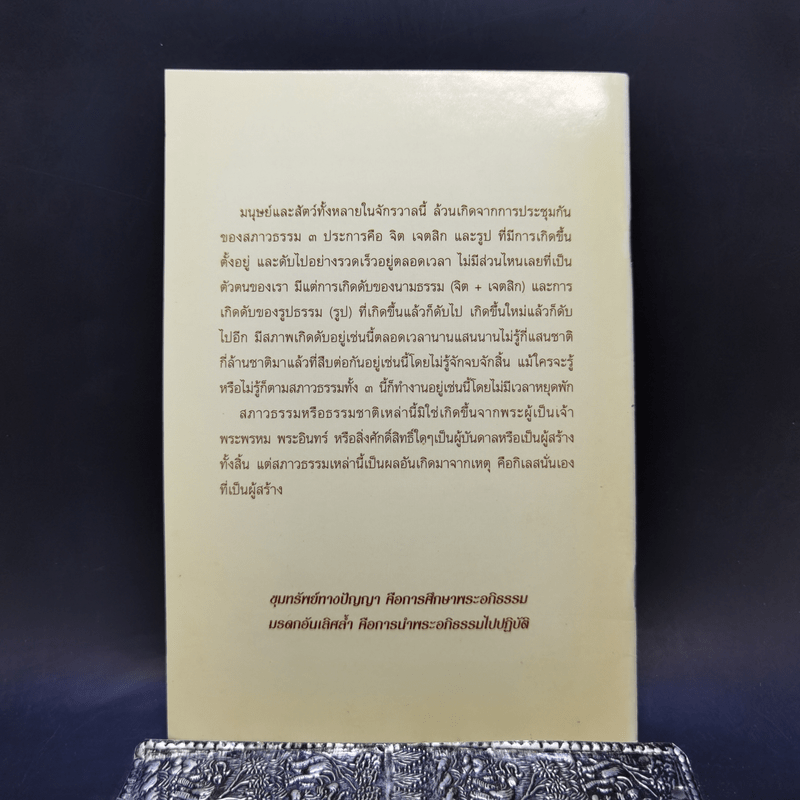 มนุษย์และสัตว์ทั้งหลายในจักรวาลนี้ ล้วนเกิดจากการประชุมกัน
ของสภาวธรรม ๓ ประการคือ จิต เจตสิก และรูป ที่มีการเกิดขึ้น
ตั้งอยู่ และดับไปอย่างรวดเร็วอยู่ตลอดเวลา ไม่มีส่วนไหนเลยที่เป็น
ตัวตนของเรา มีแต่การเกิดดับของนามธรรม (จิต + เจตสิก) และการ
เกิดดับของรูปธรรม (รูป) ที่เกิดขึ้นแล้วก็ดับไป เกิดขึ้นใหม่แล้วก็ดับ
ไปอีก มีสภาพเกิดดับอยู่เช่นนี้ตลอดเวลานานแสนนานไม่รู้กี่แสนชาติ
กี่ล้านชาติมาแล้วที่สืบต่อกันอยู่เช่นนี้โดยไม่รู้จักจบจักสิ้น แม้ใครจะรู้
หรือไม่รู้ก็ตามสภาวธรรมทั้ง ๓ นี้ก็ทำงานอยู่เช่นนี้โดยไม่มีเวลาหยุดพัก
สภาวธรรมหรือธรรมชาติเหล่านี้มิใช่เกิดขึ้นจากพระผู้เป็นเจ้า
พระพรหม พระอินทร์ หรือสิ่งศักดิ์สิทธิ์ใดๆเป็นผู้บันดาลหรือเป็นผู้สร้าง
ทั้งสิ้น แต่สภาวธรรมเหล่านี้เป็นผลอันเกิดมาจากเหตุ คือกิเลสนั่นเอง
ที่เป็นผู้สร้าง
ขุมทรัพย์ทางปัญญา คือการศึกษาพระอภิธรรม
มรดกอันเลิศล้ำ คือการนำพระอภิธรรมไปปฏิบัติ